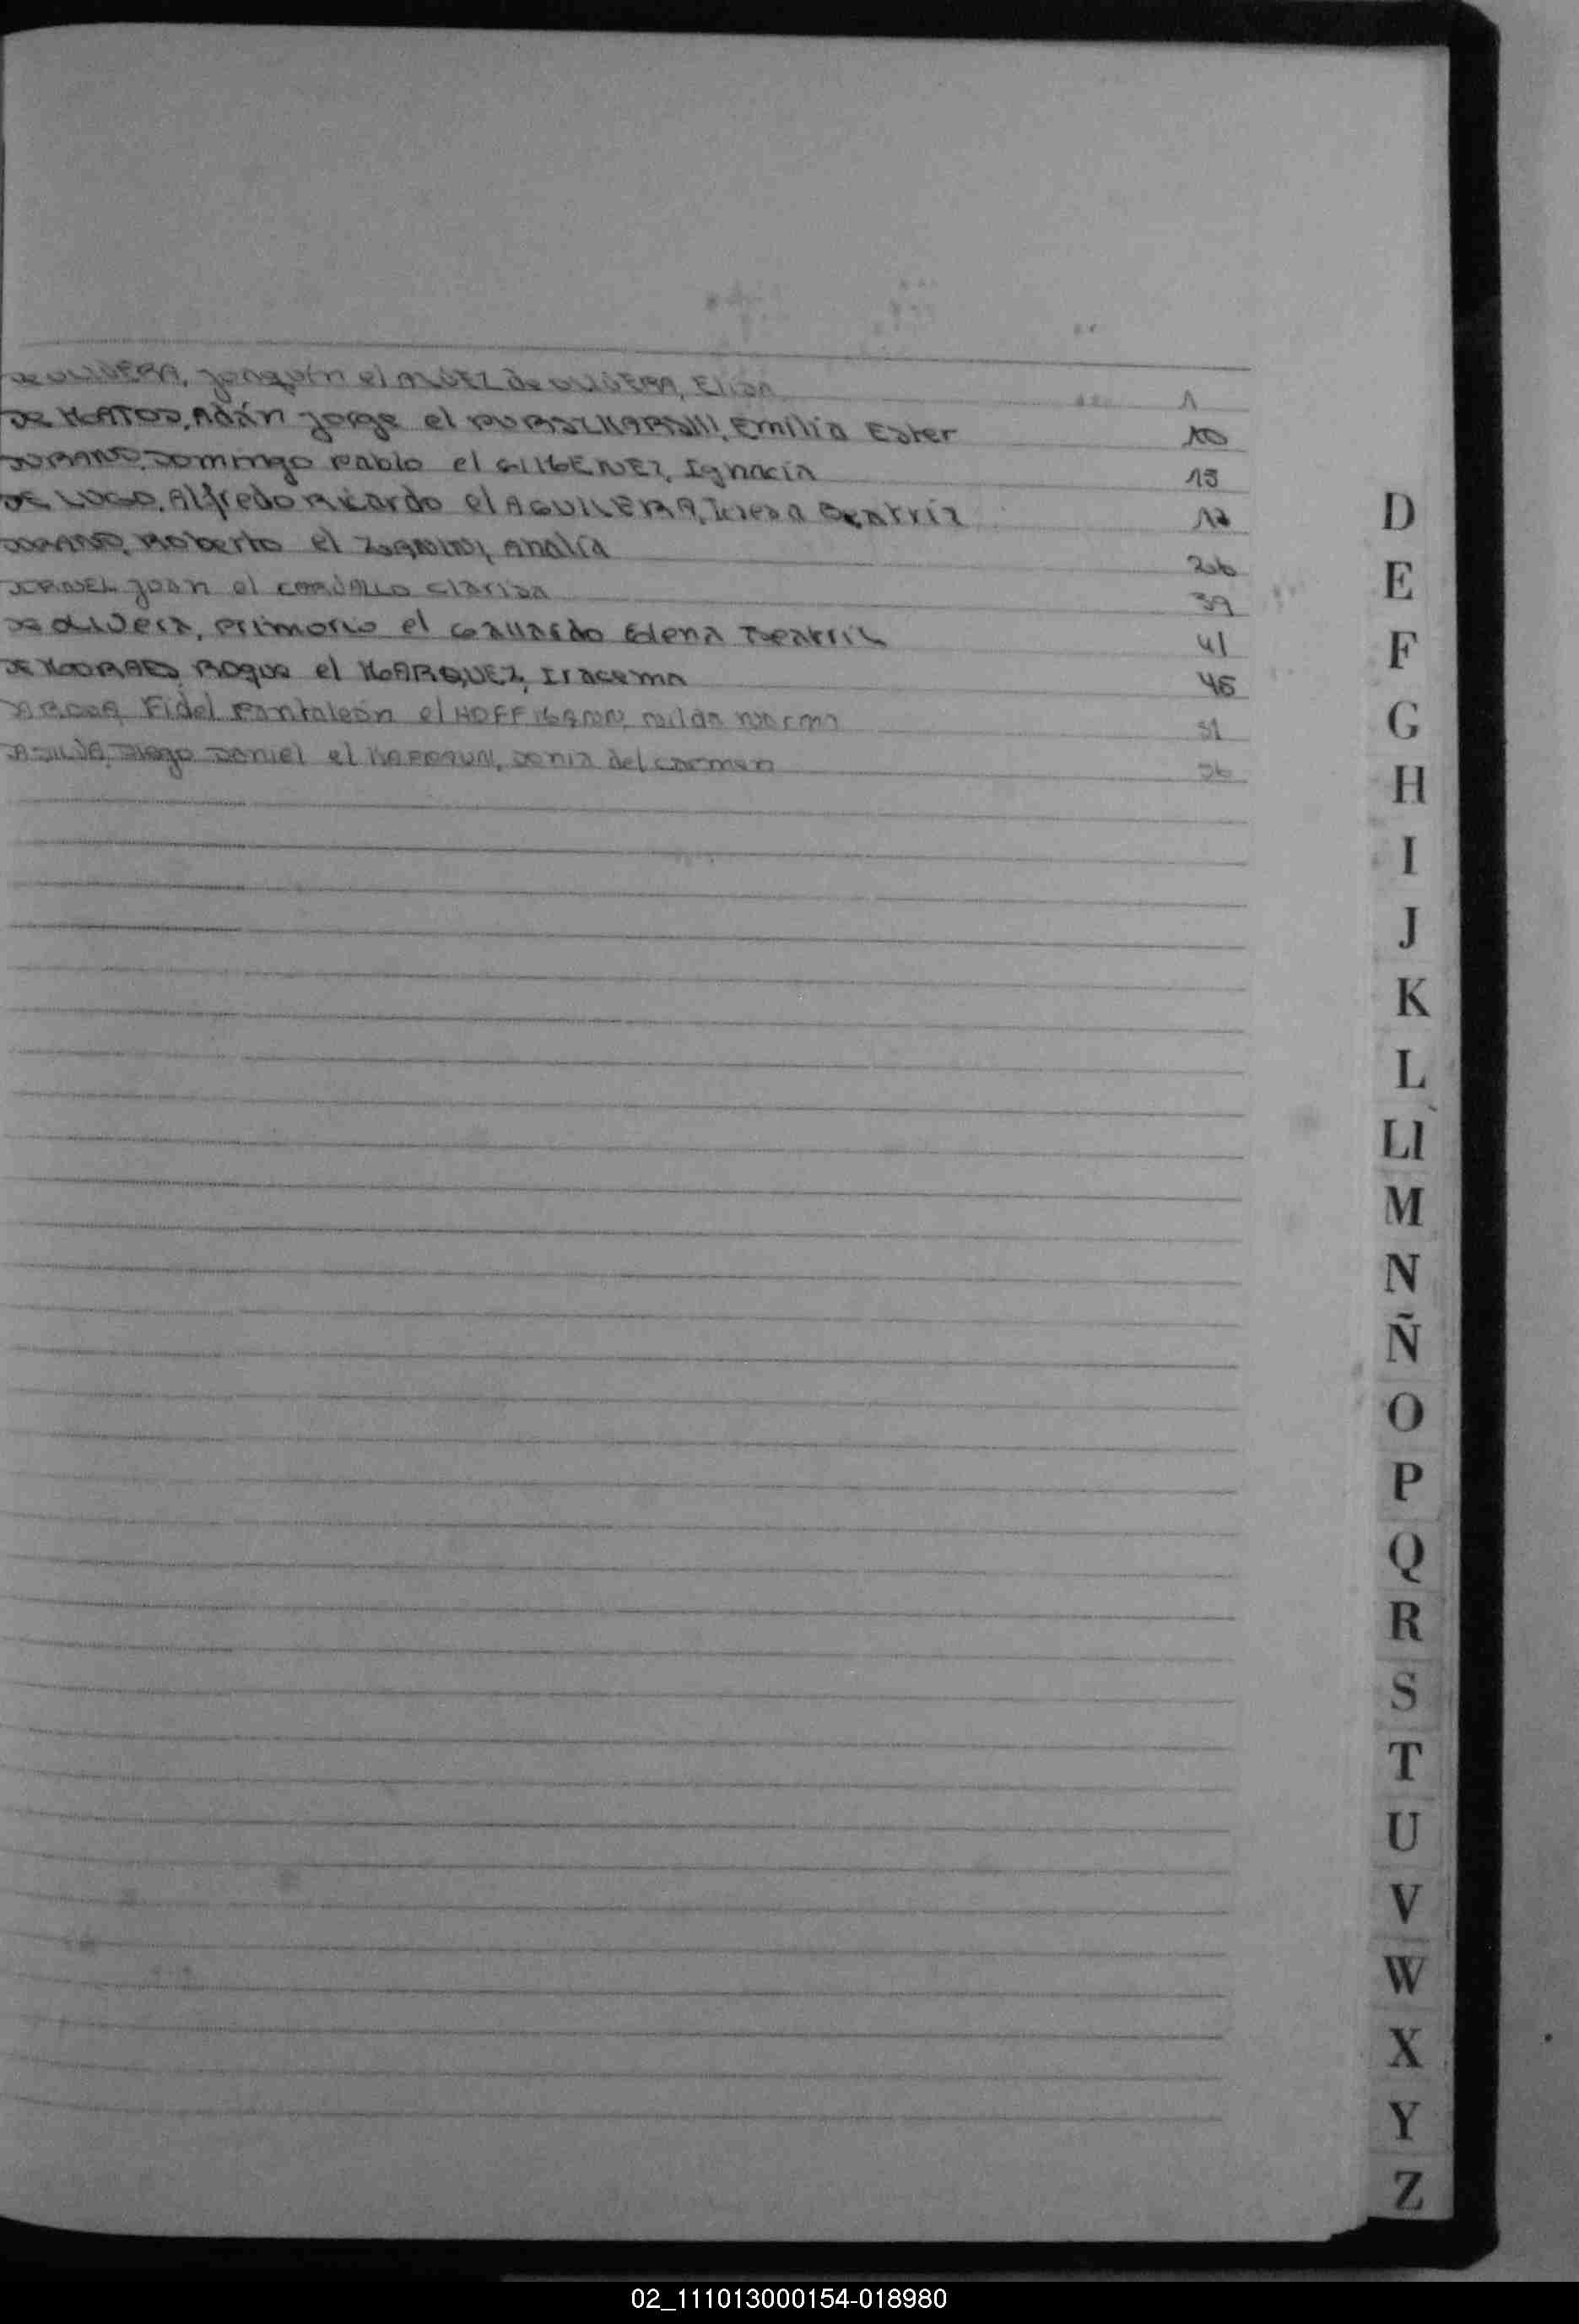 DE OLIVERA, Joaquín el de OLIVERA, Elisa 1
DE MATOS, Adán Jorge el Emilia Ester 10
DURAND, Domingo Pablo el GIMENEZ, Ignacia 15
DE LUGO, Alfredo Ricardo el AGUILERA, Teresa Beatriz 17
Roberto el Analía 26
DORNEL Juan el Clarisa 39
DE OLIVERA, Primorio el Gallardo Elena Beatriz 41
DE MORAES Roque el MARQUEZ, Iracema 46
DA ROSA Fidel Pantaleón el HOFFMANN, Norma 51
DA SILVA, Diego Daniel el Sonia del Carmen
D
E
F
G
H
I
J
K
L
Ll
M
N
Ñ
O
P
Q
R
S
T
U
V
W
X
Y
Z
02_111013000154-018980